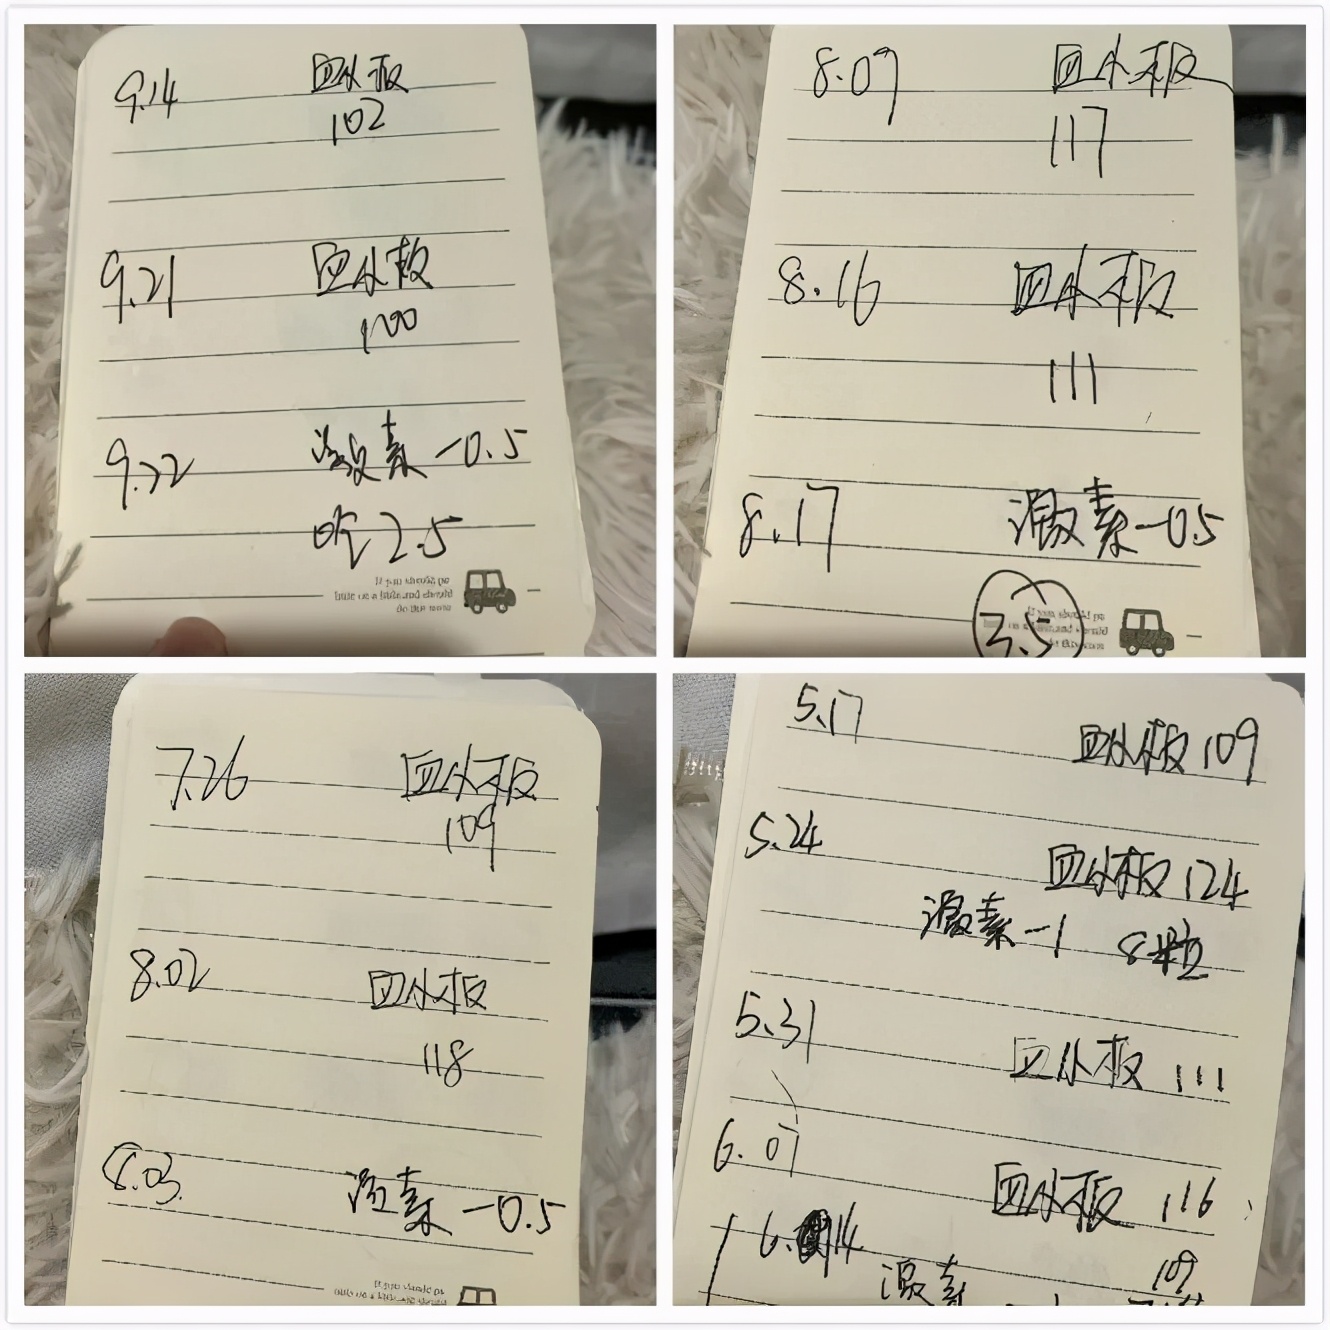 9.14 血小板
102
9.21 血小板
100
9.22 激素-0.5
吃2.5
8.09 血小板
117
8.16 血小板
111
8.17 激素-0.5
3.5
7.26 血小板
109
8.02 血小板
118
8.03 激素-0.5
5.17 血小板109
5.24 血小板124
激素-1 8粒
5.31 血小板 111
6.07 血小板 116
6.14 109
激素